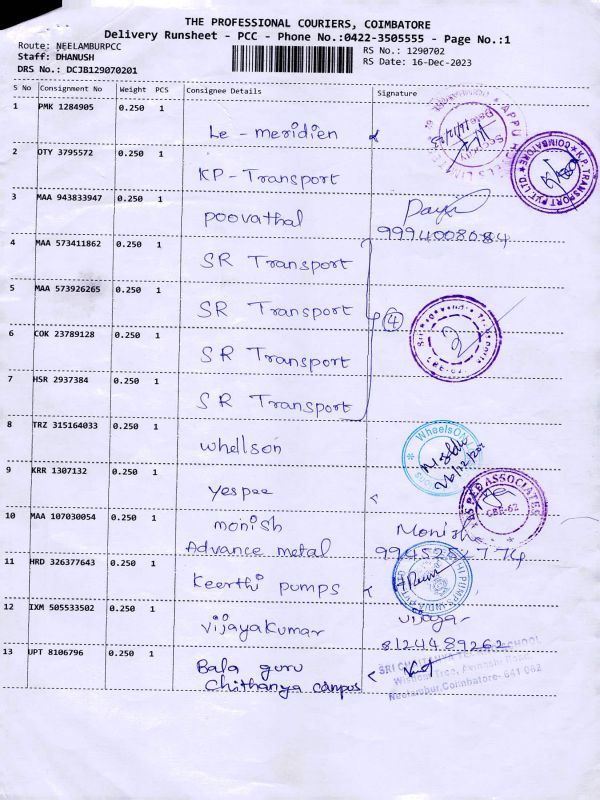 THE PROFESSIONAL COURIERS, COIMBATORE
Delivery Runsheet - PCC - Phone No.:0422-3505555 - Page No.:1
Route: NEELAMBURPCC
RS No.: 1290702
Staff: DHANUSH
RS Date: 16-Dec-2023
DRS No.: DCJB129070201
S No Consignment No Weight PCS Consignee Details Signature
1 PMK 1284905 0.250 1
Le - meridien
2 OTY 3795572 0.250 1
KP - Transport
3 MAA 943833947 0.250 1
poovathal
9994008084
4 MAA 573411862 0.250 1
SR Transport
5 MAA 573926265 0.250 1
SR Transport
4
6 COK 23789128 0.250 1
SR Transport
7 HSR 2937384 0.250 1
SR Transport
8 TRZ 315164033 0.250 1
whellson
WheelsON
9 KRR 1307132 0.250 1
yespee
YES PEE ASSOCIATES
CBE-62
10 MAA 107030054 0.250 1
monish
Monish
Advance metal
11 HRD 326377643 0.250 1
Keerthi pumps
12 IXM 505533502 0.250 1
vijayakumar
vijaya
8124489262
13 UPT 8106796 0.250 1
Bala guru
chithanya canpus
SCHOOL
Neelambur, Coimbatore - 641 062
K.P. TRANSPORT PVT. LTD.
COIMBATORE